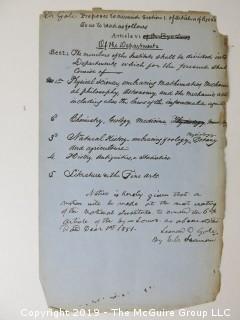 Dr. Gale proposes to amend Section 1. of Article of
so as to read as follows
Article VI
Of the Departments
Sect: The members of the Institute shall be divided into
Departments, which for the present shall
Consist of
1st Physical Sciences, embracing Mathematics, Mechanical
philosophy, Astronomy, and the Mechanic arts
including also the
2 Chemistry, Geology, Medicine
3 Natural History, embracing Zoology, Botany
and agriculture
4 History, Antiquities & Statistics
5 Literature & the Fine Arts.
Notice is hereby given that a
motion will be made at the next meeting
of the National Institute to amend the 6th
Article of the by-laws as above
Dec 1st 1851.
Leonard D. Gale,
By
Copyright 2019 - The McGuire Group LLC